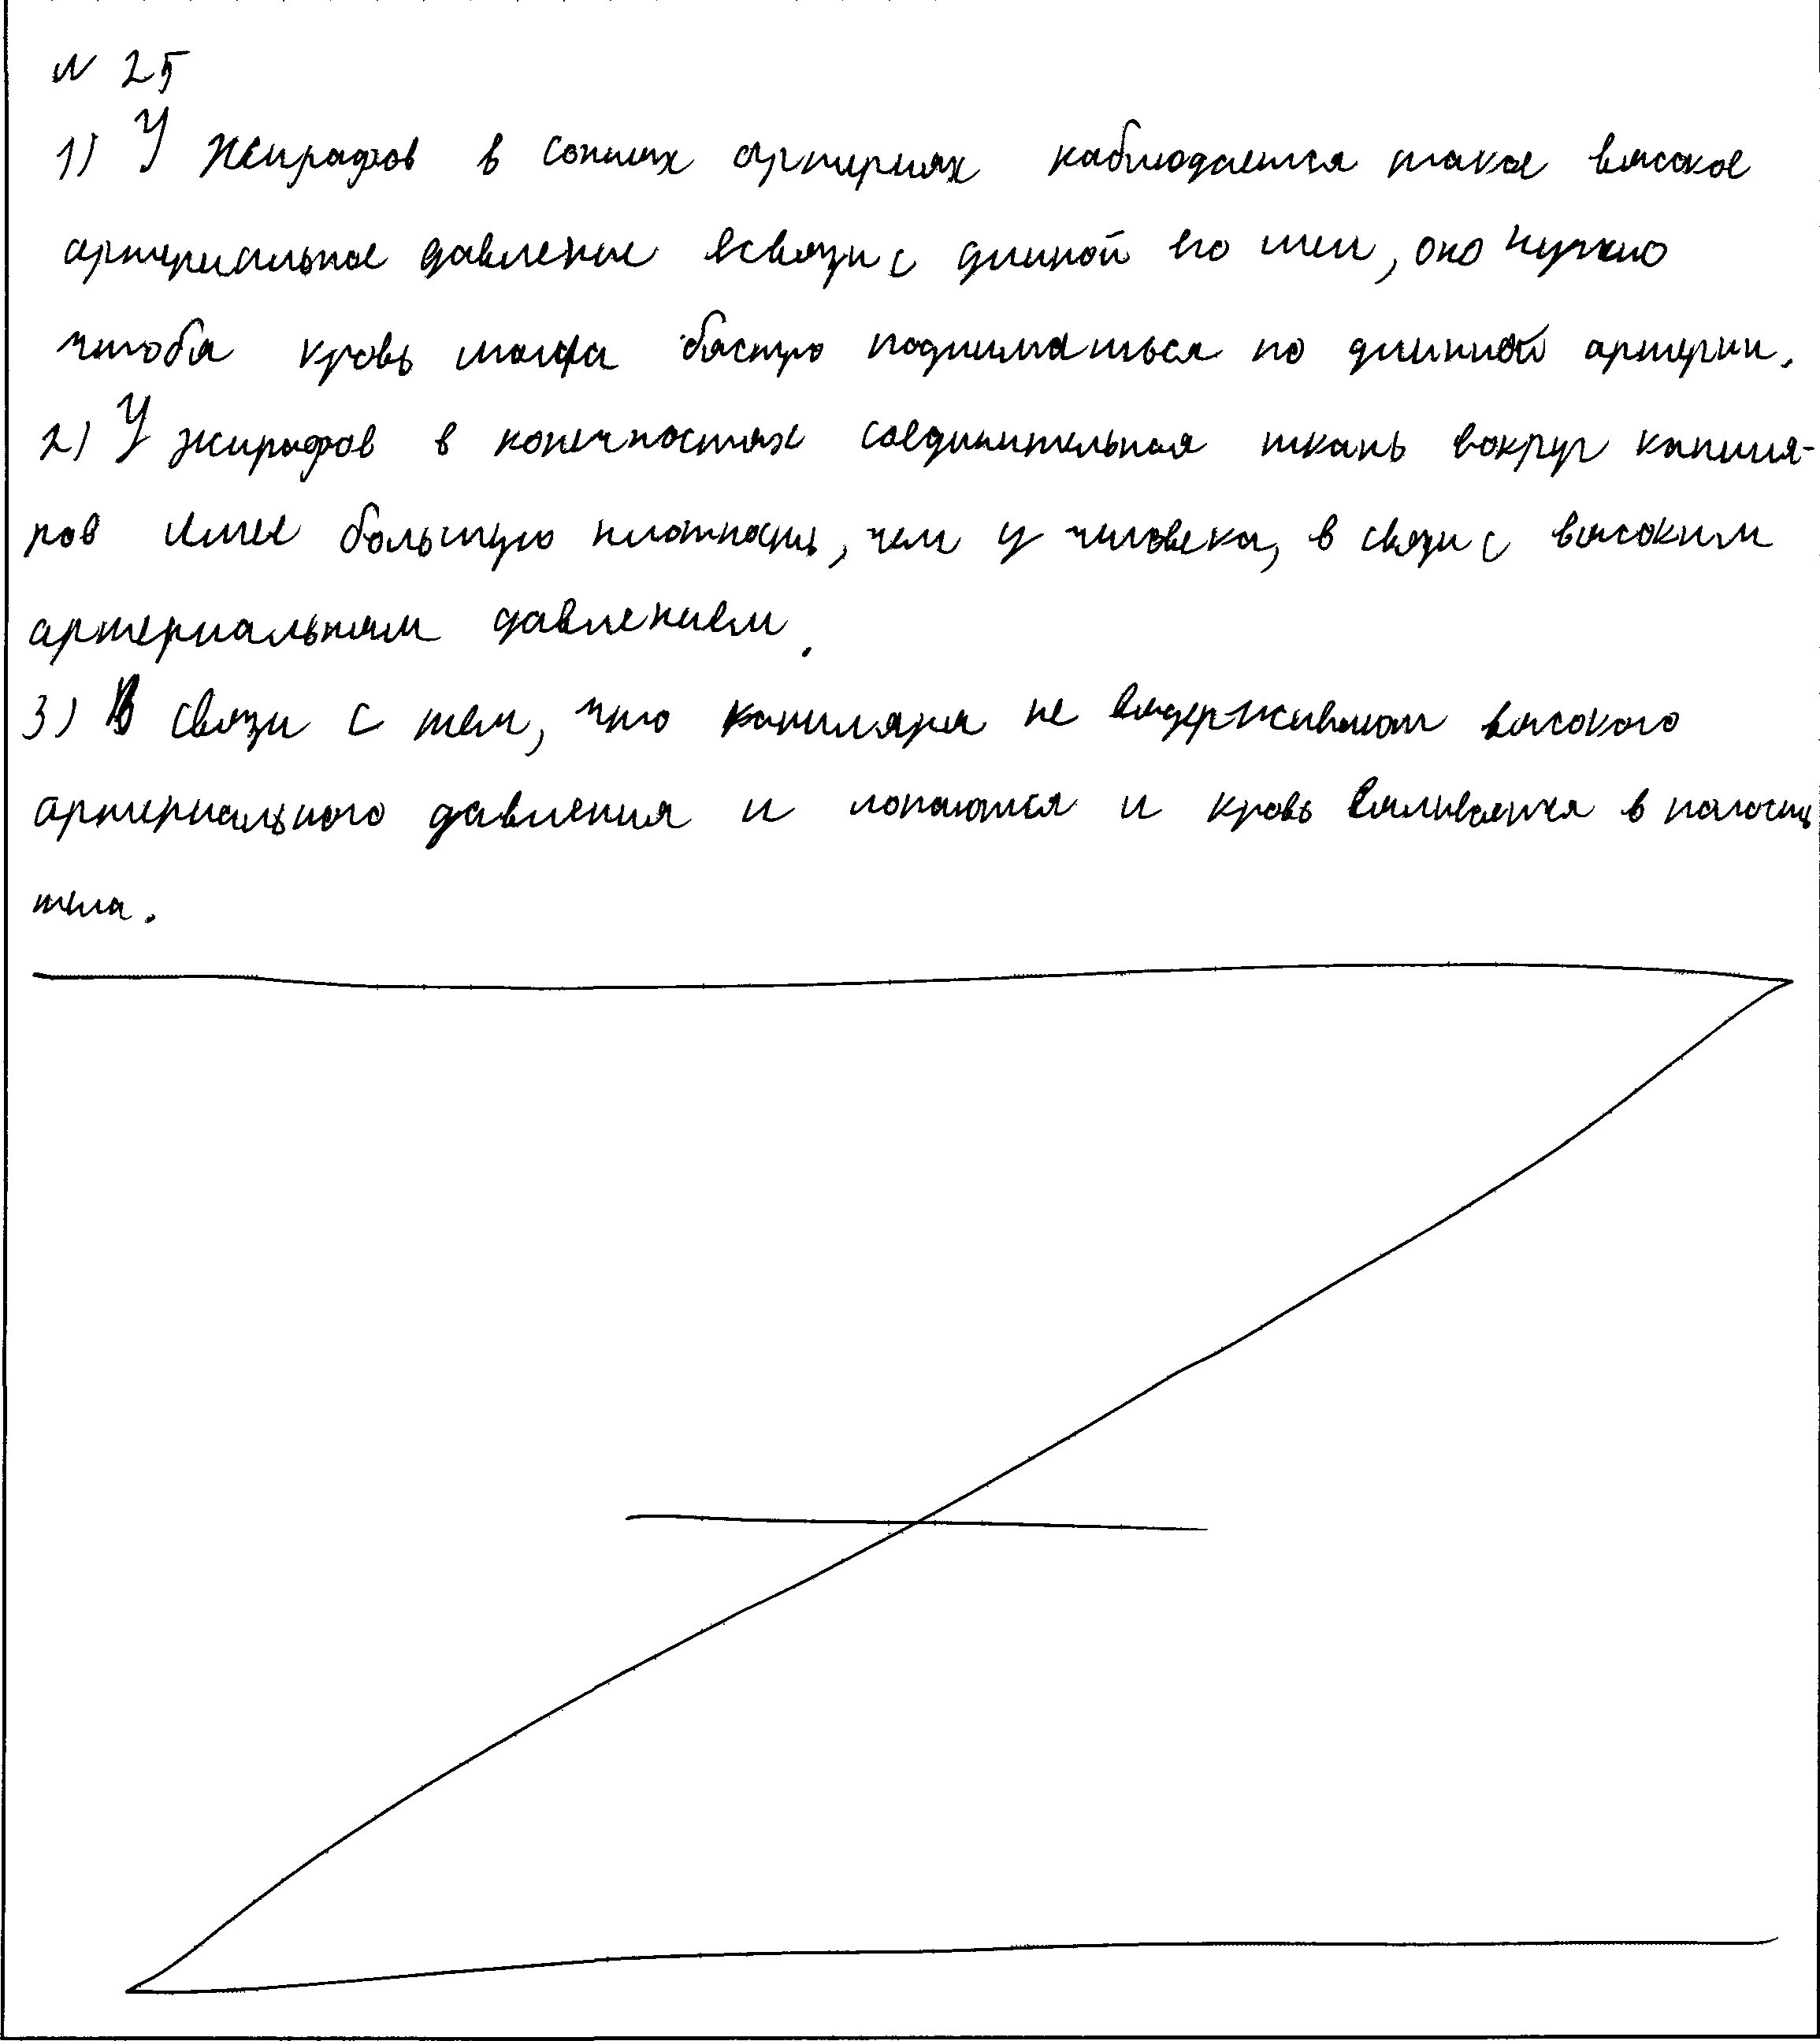 N 25
1) У жирафов в сонных артериях наблюдается такое высокое
артериальное давление всвязи с длиной его шеи, оно нужно
чтобы кровь могла быстро подниматься по длинной артерии.
2) У жирафов в конечностях соединительная ткань вокруг капиля-
ров имее большую плотность, чем у человека, в связи с высоким
артериальным давлением.
3) В связи с тем, что капиляры не выдерживают высокого
артериального давления и лопаются и кровь выливается в полость
тела.